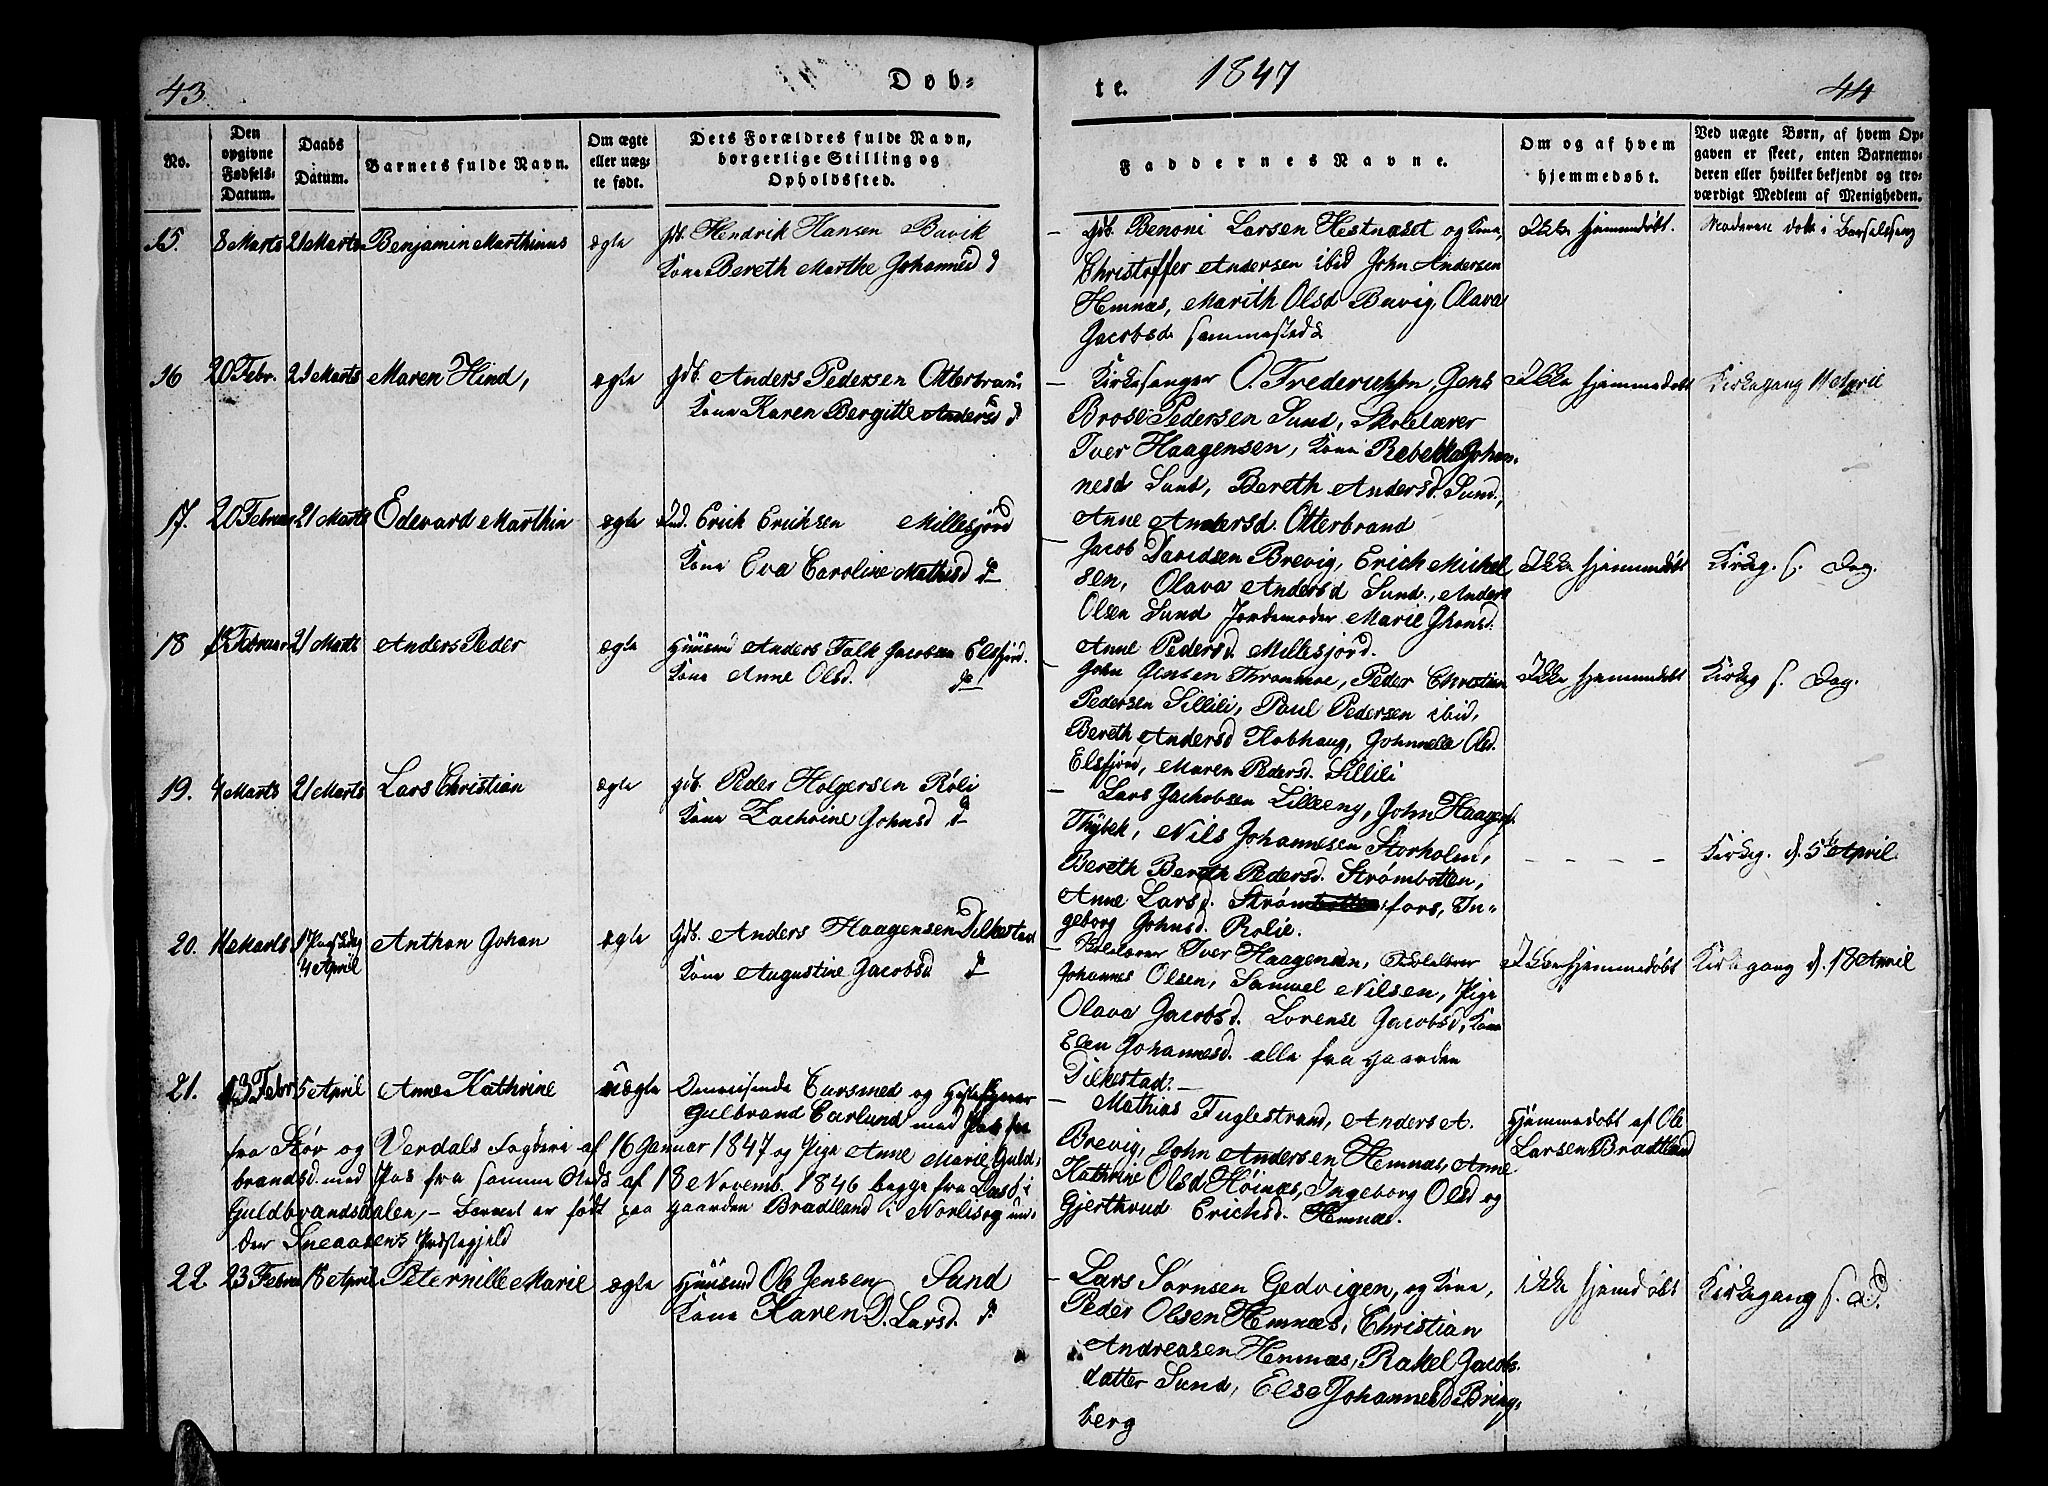 43
Døb-
te.
1847
44
No.
Den opgivne Fødsels-Datum.
Daabs Datum.
Barnets fulde Navn.
Om ægte eller uæg-te født.
Dets Forældres fulde Navn, borgerlige Stilling og Opholdssted.
Faddernes Navne.
Om og af hvem hjemmedøbt.
Ved uægte Børn, af hvem Op-gaven er skeet, enten Barnemo-deren eller hvilket bekjendt og tro-værdigt Medlem af Menigheden.
15. 8 Marts 21 Marts Benjamin Marthinus ægte Gdb. Hendrik Hansen Buvik
Kone Bereth Marthe Johannesd
Gdb. Benoni Larsen Hestnæset og Kone,
Christoffer Andersen ibid John Andersen
Hemnæs, Marith Olsd Buvig, Olava
Jacobsd. sammesteds
Ikke hjemmedøbt.
Moderen død i Barselseng
16 20 Febr. 21 Marts Maren Hind, ægte Gdb. Anders Pedersen Otterbran
Kone Karen Bergitte Andersd
Kirkesanger O. Frederichsen, Jens
Brose Pedersen Sund, Skolelærer
Iver Haagensen, Kone Rebekka Johan-
nesd Sund, Bereth Andersd. Sund,
Anne Andersd. Otterbrand
Ikke hjemmedøbt
Kirkegang 11 April
17. 20 Februar 21 Marts Edevard Marthin ægte Ind. Erich Erichsen Millesjord
Kone Eva Caroline Mathisd
Jacob Davidsen Brevig, Erich Michel
sen, Olava Andersd Sund, Anders
Olsen Sund Jordemoder Marie Jhonsd.
Anne Pedersd. Millesjord.
Ikke hjemmedøbt
Kirkeg. s. Dag.
18 Februar 21 Marts Anders Peder ægte Huusmd Anders Falk Jacobsen Elsfjord.
Kone Anne Olsd.
John Jensen Thronmoe, Peder Christian
Pedersen Lillili, Paul Pedersen ibid,
Bereth Andersd Kobhaug, Johnnelle Olsd.
Elsfjord, Maren Pedersd. Lillili
Ikke hjemmedøbt
Kirkeg s. Dag.
19. 4 Marts 21 Marts Lars Christian ægte Gdb. Peder Holgersen Röli
Kone Zachrine Johnsd
Lars Jachobsen Lilleeny, John Haagens.
Thÿbek, Nils Johannesen Storholm,
Bereth Bereth Pedersd. Strømbotten,
Anne Larsd. Strømbotten fors, In-
geborg Johnsd. Rolie.
Kirkeg. d. 5te April.
20. 11 Marts 1 Paaskdag 4 April Anthon Johan ægte Gdb. Anders Haagensen Dilkestad
Kone Augustine Jacobsd
Skolelærer Iver Haagensen, Skolelærer
Johannes Olsen, Samuel Nilsen, Pige
Olava Jacobsd. Lorense Jacobsd, Kone
Elen Johannesd. alle fra gaarden
Dilkestad.
Ikke hjemmedøbt
Kirkegang d. 18 April
21. 13 Febr 5 April Anne Kathrine uægte Omreisende Cursmed og
Gulbrand Carlund med Pas fra
fra Stør og Verdals Fogderi af 16 Januar 1847 og Pige Anne Marie Guld,
brandsd. med Pas fra samme Sted af 18 Novemb. 1846 begge fra i
Guldbrandsdalen, - Barnet er født paa gaarden Bradtland i Norlis og un-
der Sneaasens Præstegjeld
Mathias Fuglestrand, Anders A.
Brevig, John Andersen Hemnæs, Anne
Kathrine Olsd Höinæs, Ingeborg Olsd og
Gjerthrud Erichsd. Hemnæs.
Hjemmedøbt af Ole
Larsen Bradtland
22 23 Febru 18 April Peternille Marie ægte Huusmd Ole Jensen Sund
Kone Karen D. Larsd.
Lars Sørnsen Gedvigen, og Kone,
Peder Olsen Hemnæs, Christian
Andreasen Hemnæs, Rakel Jacobs
datter Sund, Else Johannesd. Bring-
berg
ikke hjemdøbt
Kirkegang s. D.